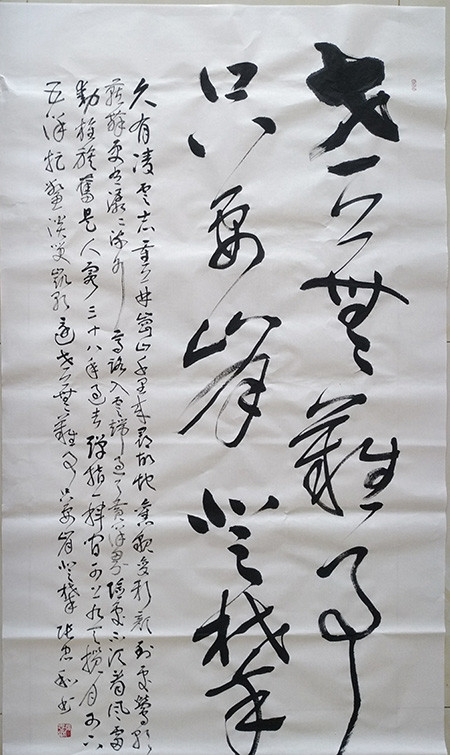 世上無難事
只要肯登攀
久有凌雲志重上井岡山千里來尋故地舊貌變新顏到處鶯歌
燕舞更有潺潺流水高路入雲端過了黃洋界險處不須看風雷
動旌旗奮是人寰三十八年過去彈指一揮間可上九天攬月可下
五洋捉鱉談笑凱歌還世上無難事只要肯登攀